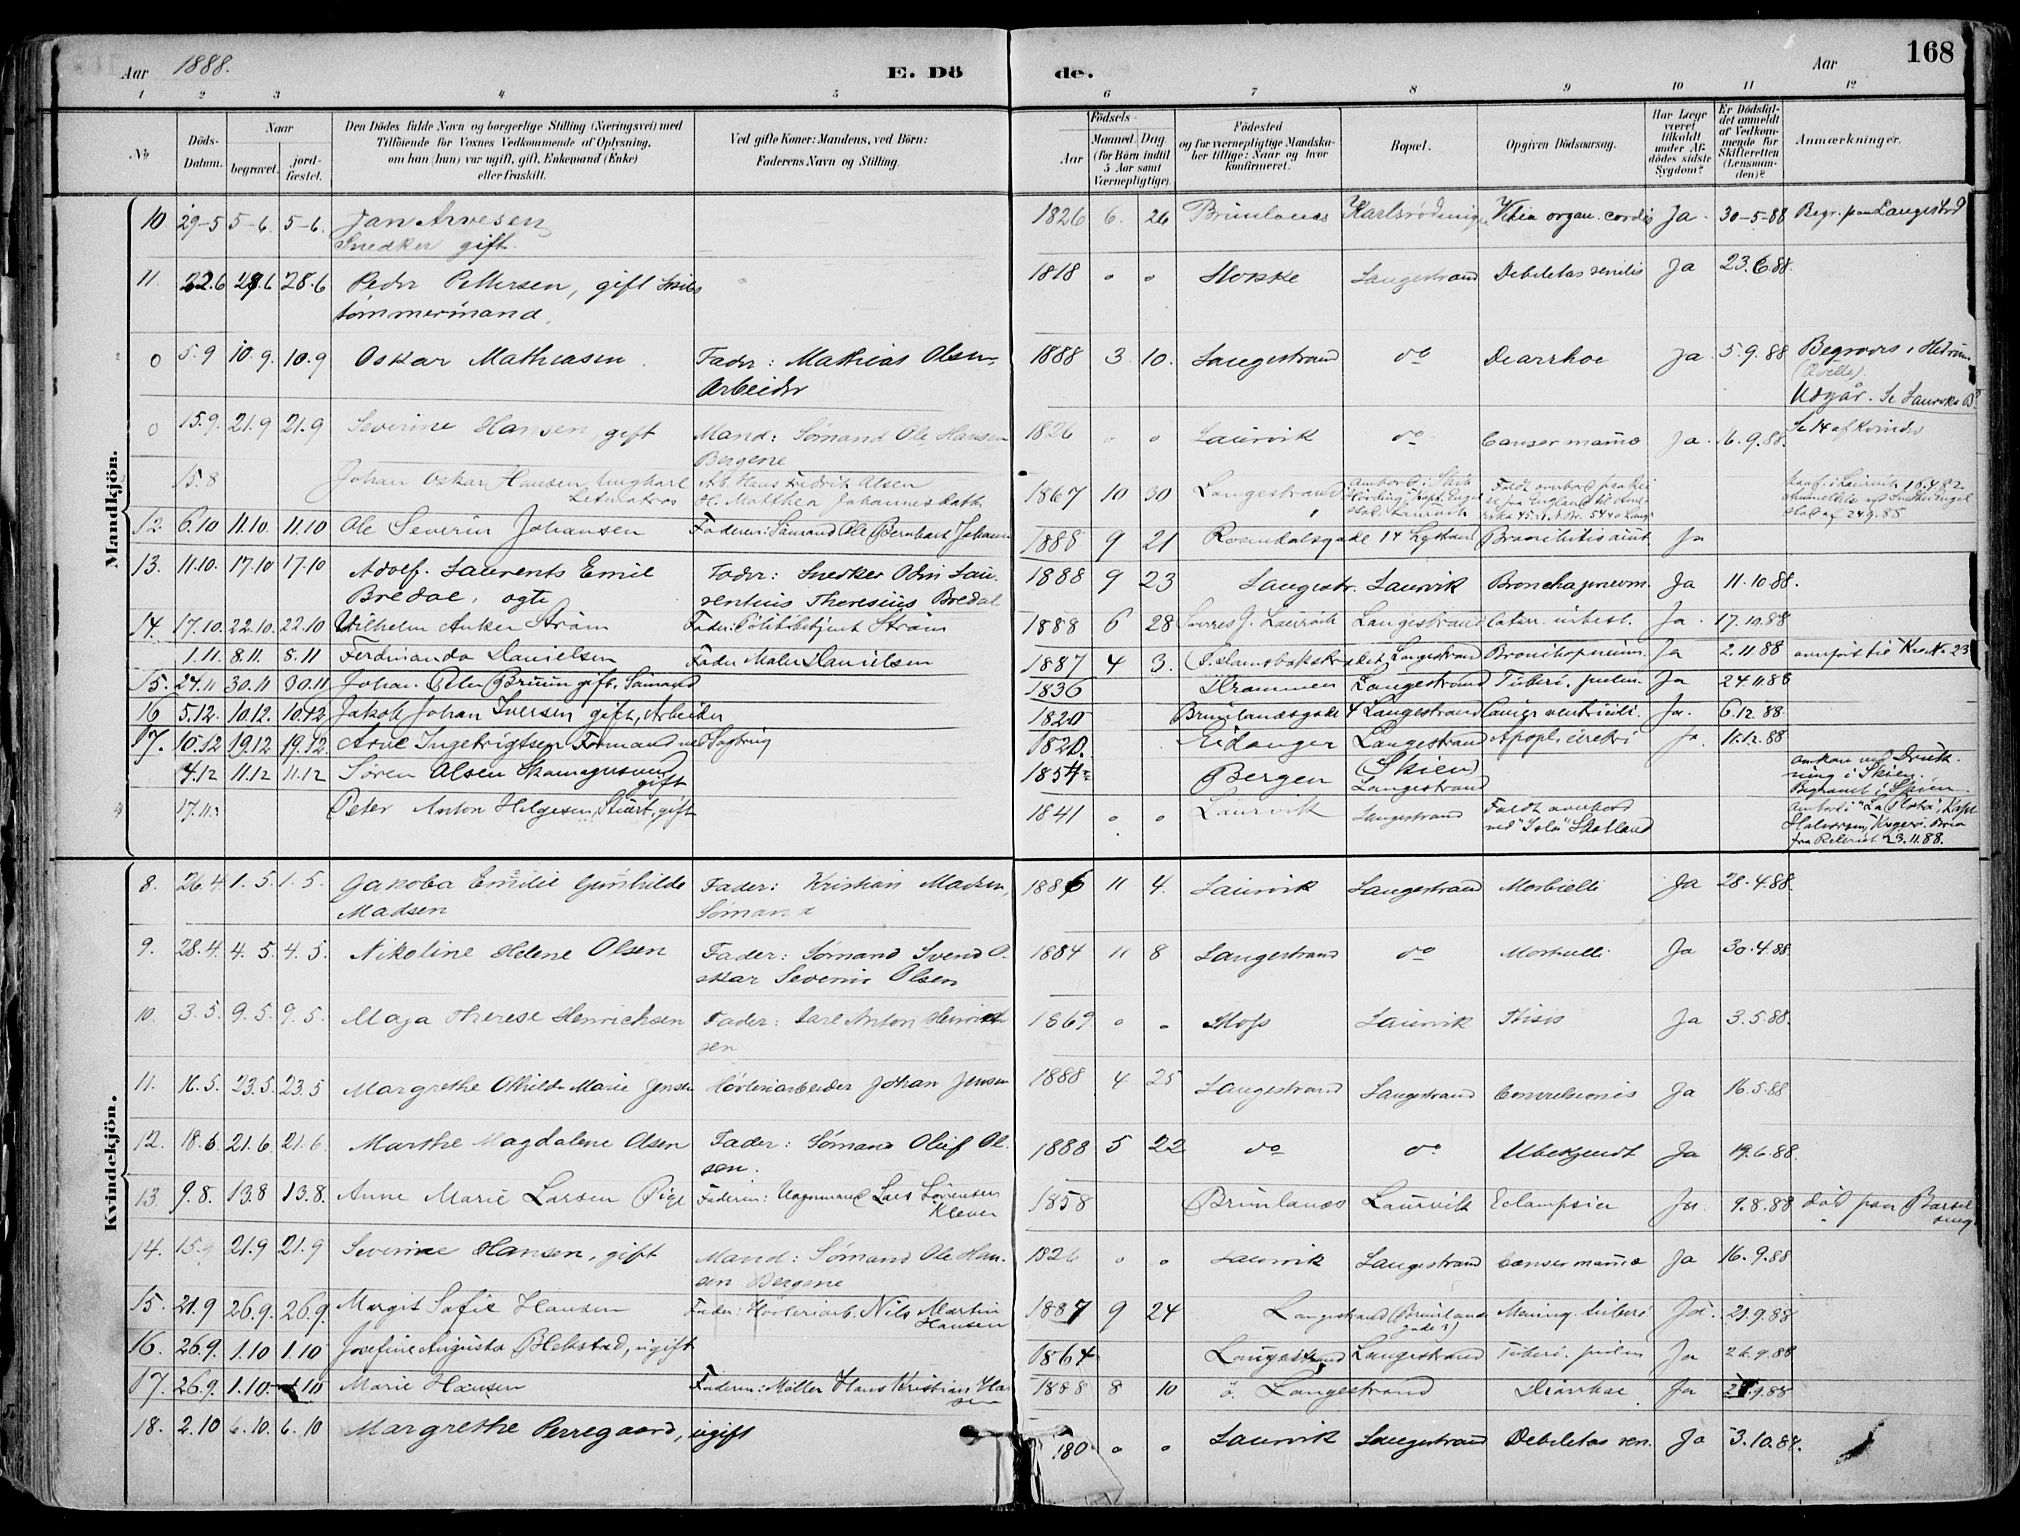 Aar 1888. E. Dö de. Aar 168
1 2 3 4 5 6 7 8 9 10 11 12
№ Döds-Datum. Naar begravet. jord-fæstet. Den Dödes fulde Navn og borgerlige Stilling (Næringsvei) med Tilföiende for Voxnes Vedkommende af Oplysning, om han (hun) var ugift, gift, Enkemand (Enke) eller fraskilt. Ved gifte Koner: Mandens, ved Börn: Faderens Navn og Stilling. Födsels- Aar Maaned. Dag. (for Börn indtil 5 Aar samt Værnepligtige). Födested og for værnepligtige Mandskaber tillige: Naar og hvor konfirmeret. Bopæl. Opgiven Dödsaarsag. Har Læge været tilkaldt under Afdödes sidste Sygdom? Er Dödsfaldet anmeldt af Vedkommende for Skifteretten (Lensmanden)? Anmærkninger.
Mandkjön.
10 29-5 5-6. 5-6. Jan Arvesen Snedker gift. 1826 6. 26 Brunlanes Vitia organ. cordis Ja. 30-5-88 Begr. paa Langestrd
11. 22.6 28.6 28.6 Peder Pettersen, gift Skibs tømmermand. 1818 " " Langestrand Debilitas senilis Ja 23.6.88.
0 5.9 10.9. 10.9 Oskar Mathiasen. Fader: Mathias Olsen, Arbeider 1888 3 10. Langestrand do Diarrhoe Ja. 5.9.88 Begraves i Hedrum Udgår. Se Laurviks B.
0 15.9. 21.9 21.9 Severine Hansen, gift Mand: Sømand Ole Hansen Bergene 1826 " " Laurvik do Cancer mamæ Ja. 16.9.88. Se 14 af Kvinder
15.8 Johan Oskar Hansen, Ungkarl Letmatros Hans Fredrik Olsen 1867 10 30 Langestrand
12 6.10 11.10 11.10 Ole Severin Johansen Faderen: Sømand Ole Bernhart Johansen 1888 9 21 Rosendalsgade 14 Lgstrand Bronchitis acut. Ja
13. 11.10. 17.10 17.10 Adolf Laurents Emil Bredal, ægte Fader: Snedker Odin Laurentius Theresius Bredal 1888 9 23 Langestr. Laurvik Bronchopneum. Ja 11.10.88.
14. 17.10. 22.10. 22.10 Wilhelm Anker Strøm Fader: Politibetjent Strøm 1888 6 28 Langestrand Catarr. intest. Ja. 17.10.88
1.11. 8.11. 8.11 Ferdinanda Danielsen Fader Maler Danielsen 1887 4 3. Langestrand Bronchopneum. Ja 2.11.88 anført til Kv. N. 23
15. 24.11 30.11 30.11 Johan Peter Bruun gift, Sømand 1836 Drammen Langestrand Tuberc. pulm. Ja 24.11.88
16 5.12. 10.12. 10.12 Jakob Johan Iversen gift, Arbeider 1820 Brunlanesgade 4 Langestrand Cancer ventriculi. Ja. 6.12.88.
17. 10.12 19.12 19.12. Arne Ingebrigtsen Formand ved Sagbrug 1820. Eidanger Langestrand Apopl. cerebri Ja. 11.12.88
4.12 11.12 11.12 Søren Olsen Skomagersvend gift 1854 Bergen (Skien) Langestrand omkom ved Drukning i Skien. Begravet i Skien.
17.11. Peter Anton Helgesen, Stuert, gift 1841 " " Laurvik Langestrand Faldt overbord 23.11.88.
Kvindekjön.
8. 26.4. 1.5. 1.5. Jakoba Emilie Gunhilde Madsen Fader: Kristian Madsen, Sømand 1886 11 4. Laurvik Langestrand Morbilli Ja 28.4.88.
9. 28.4. 4.5. 4.5. Nikoline Helene Olsen Fader: Sømand Svend Oskar Severin Olsen 1884 11 8 Langestrand do Morbilli Ja 30.4.88.
10. 3.5. 9.5. 9.5. Maja Therese Henrichsen Fader: Carl Anton Henrichsen 1869 " " Moss Laurvik Ftisis Ja 3.5.88.
11. 16.5. 23.5 23.5 Margrethe Othilde Marie Jensen Høvleriarbeider Johan Jensen 1888 4 25 Langestrand Langestrand Convulsiones Ja 16.5.88
12. 18.6 21.6 21.6 Marthe Magdalene Olsen Fader: Sømand Oluf Olsen. 1888 5 22 do do Ubekjendt Ja 19.6.88.
13 9.8. 13.8 13.8. Anne Marie Larsen Pige Faderen: Lars Sørensen Klever 1858 Brunlanes Laurvik Eclampsia Ja. 9.8.88 død paa Barselseng
14. 15.9 21.9 21.9 Severine Hansen, gift Mand: Sømand Ole Hansen Bergene 1826 " " Laurvik Langestrand Cancer mamæ Ja 16.9.88
15. 21.9 26.9. 26.9. Margit Sofie Hansen Fader: Høvleriarb. Nils Martin Hansen 1887 9 24 Langestrand Mening. tuberc. Ja. 21.9.88
16. 26.9. 1.10 1.10 Josefine Augusta Blekstad, ugift 1864 Langestrand Langestrand Tuberc. pulm Ja 26.9.88
17. 26.9. 1.10. 1.10 Marie Hansen Faderen: Møller Hans Kristian Hansen 1888 8 10 Langestrand Diarrhoe Ja 27.9.88
18. 2.10 6.10. 6.10 Margrethe Perregaard, ugift 180 " " Laurvik Langestrand Debilitas sen. Ja 3.10.88.